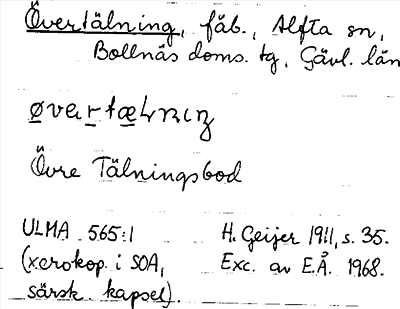 Övertälning, fäb., Alfta sn,
Bollnäs doms. tg, Gävl. län
Övre Tälningsbod
ULMA 565:1 H. Geijer 1911, s. 35.
(xerokop. i SOA, Exc. av E.Å. 1968.
särsk. kapsel).